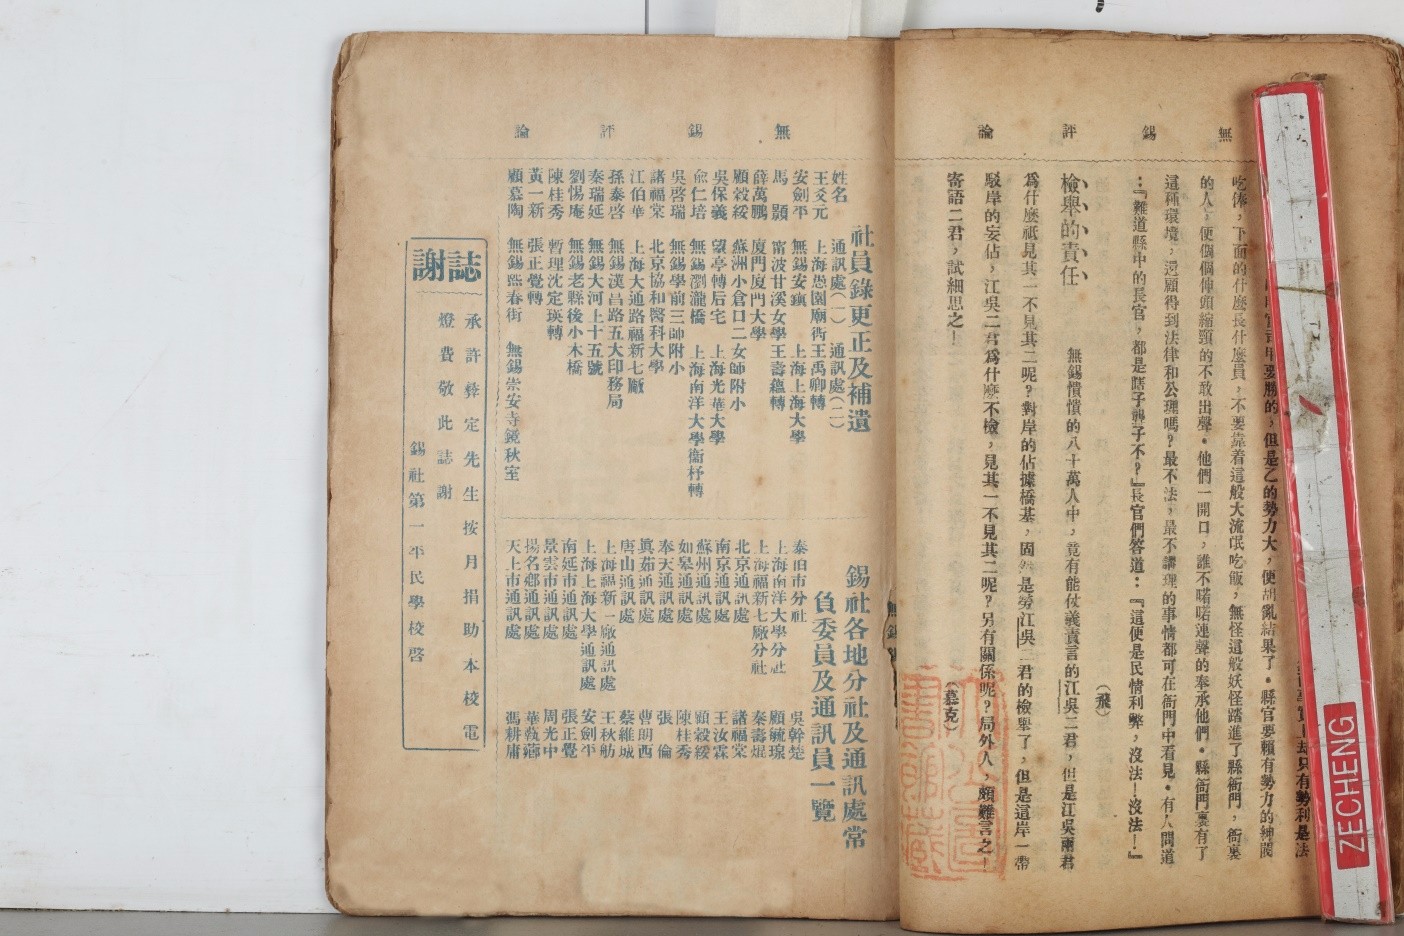 無錫評論
却只有勢利是法
要勝的，但是乙的勢力大，便胡亂結果了。縣官要賴有勢力的紳閥
吃俸，下面的什麼長什麼員，不要靠着這般大流氓吃飯，無怪這般妖怪踏進了縣衙門，衙裏
的人，便個個伸頭縮頸的不敢出聲。他們一開口，誰不喏喏連聲的奉承他們。縣衙門裏有了
這種環境，還顧得到法律和公理嗎？最不法，最不講理的事情都可在衙門中看見。有人問道
：『難道縣中的長官，都是瞎子聾子不？』長官們答道：『這便是民情利弊，沒法！沒法！』
（飛）
檢舉的責任
無錫憒憒的八十萬人中，竟有能仗義責言的江吳二君，但是江吳兩君
爲什麼祇見其一不見其二呢？對岸的佔據橋基，固然是勞江吳二君的檢舉了，但是這岸一帶
駁岸的妄佔，江吳二君爲什麼不檢，見其一不見其二呢？另有關係呢？局外人，頗難言之！
寄語二君，試細思之！
（慕克）
無錫評論
社員錄更正及補遺
姓名 通訊處（一） 通訊處（二）
王爻元 上海愚園廟衖王禹卿轉
安劍平 無錫安鎮 上海上海大學
馬顥 甯波甘溪女學王壽蘊轉
薛萬鵬 廈門廈門大學
顧穀綏 蘇洲小倉口二女師附小
吳保義 望亭轉后宅 上海光華大學
俞仁培 無錫瀏瀧橋 上海南洋大學衞杼轉
吳啓瑞 無錫學前三師附小
諸福棠 北京協和醫科大學
江伯華 上海大通路福新七廠
孫泰啓 無錫漢昌路五大印務局
秦瑞延 無錫大河上十五號
劉惕庵 無錫老縣後小木橋
陳桂秀 暫理沈定瑛轉
黃一新 張正覺轉
顧慕陶 無錫熙春街 無錫崇安寺鏡秋室
錫社各地分社及通訊處常
負委員及通訊員一覽
泰伯市分社 吳幹楚
上海南洋大學分社 顧毓琅
上海福新七廠分社 秦壽焜
北京通訊處 諸福棠
南京通訊處 王汝霖
蘇州通訊處 顧穀綏
如皋通訊處 陳桂秀
奉天通訊處 張倫
眞茹通訊處 曹朗西
唐山通訊處 蔡維城
上海福新一廠通訊處 王秋舫
上海上海大學通訊處 安劍平
南延市通訊處 張正覺
景雲市通訊處 周光中
揚名鄉通訊處 華蓺薌
天上市通訊處 馮耕庸
誌謝
承許彝定先生按月捐助本校電
燈費敬此誌謝
錫社第一平民學校啓
ZECHENG